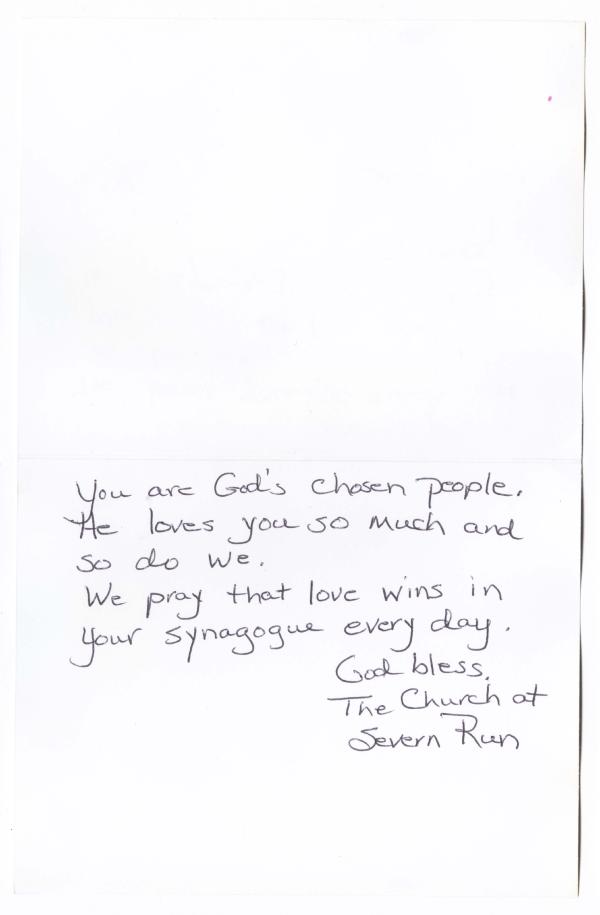 You are God's chosen people.
He loves you so much and
so do we.
We pray that love wins in
your synagogue every day.
God bless.
The Church at
Severn Run